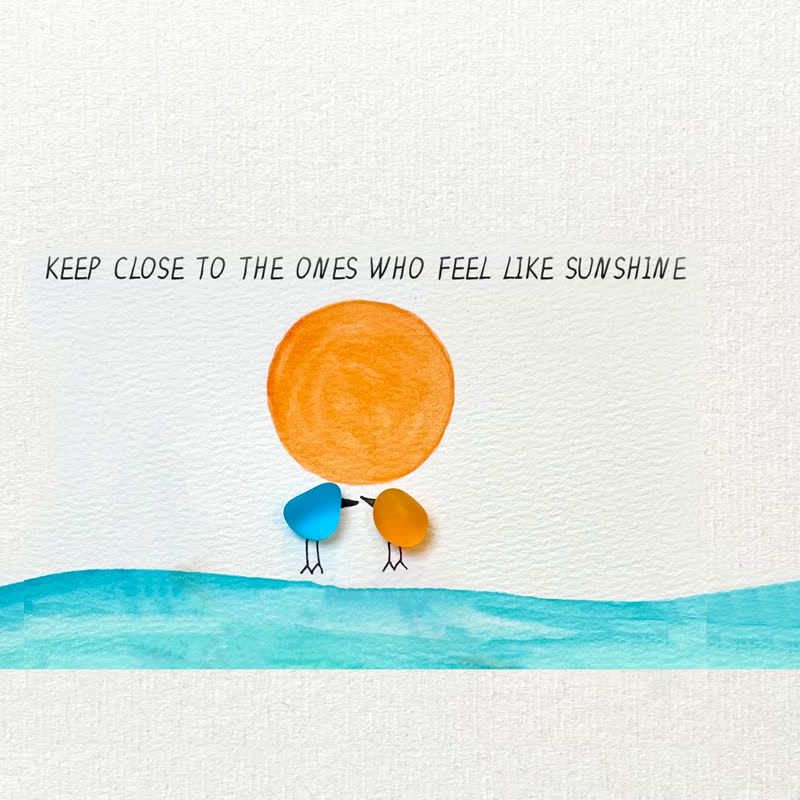 KEEP CLOSE TO THE ONES WHO FEEL LIKE SUNSHINE